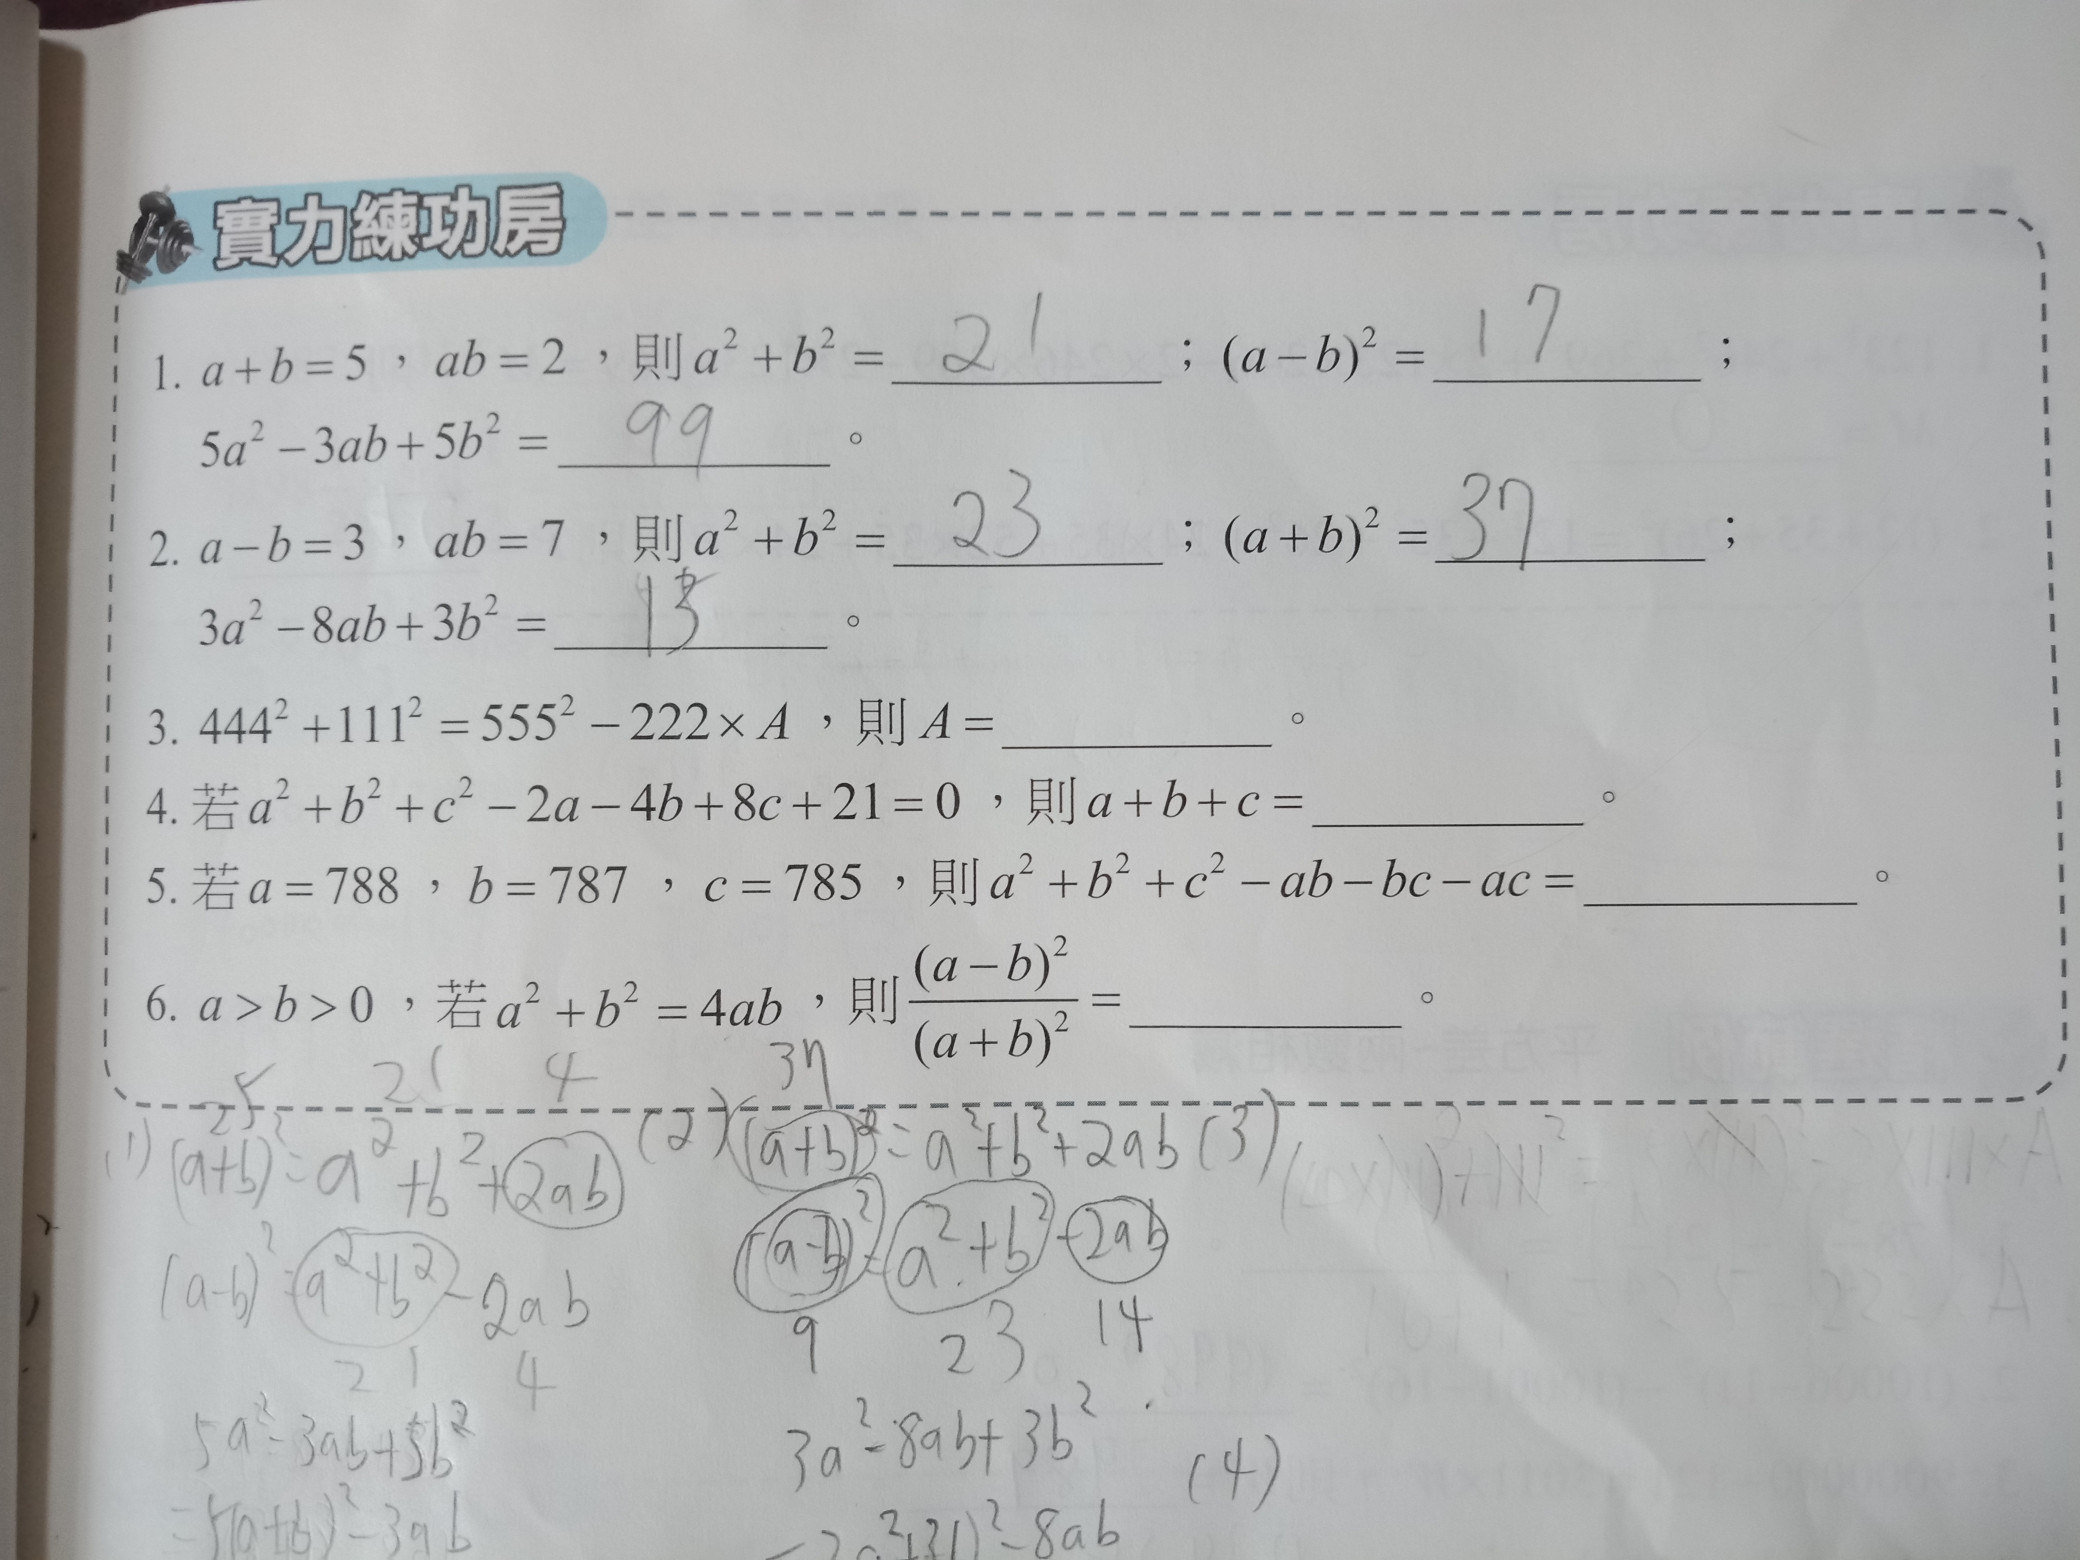 實力練功房
1. a+b=5，ab=2，則a²+b²=21；(a−b)²=17；
5a²−3ab+5b²=99。
2. a−b=3，ab=7，則a²+b²=23；(a+b)²=37；
3a²−8ab+3b²=13。
3. 444²+111²=555²−222×A，則A=________。
4. 若a²+b²+c²−2a−4b+8c+21=0，則a+b+c=________。
5. 若a=788，b=787，c=785，則a²+b²+c²−ab−bc−ac=________。
6. a>b>0，若a²+b²=4ab，則(a−b)²/(a+b)²=________。
25 21 4 37
(1) (a+b)²=a²+b²+2ab (2) (a+b)²=a²+b²+2ab (3)
(a-b)²=a²+b²-2ab (a-b)²=a²+b²-2ab
21 4 9 23 14
5a²-3ab+5b² 3a²-8ab+3b² (4)
=5(a+b)²-3ab -8ab